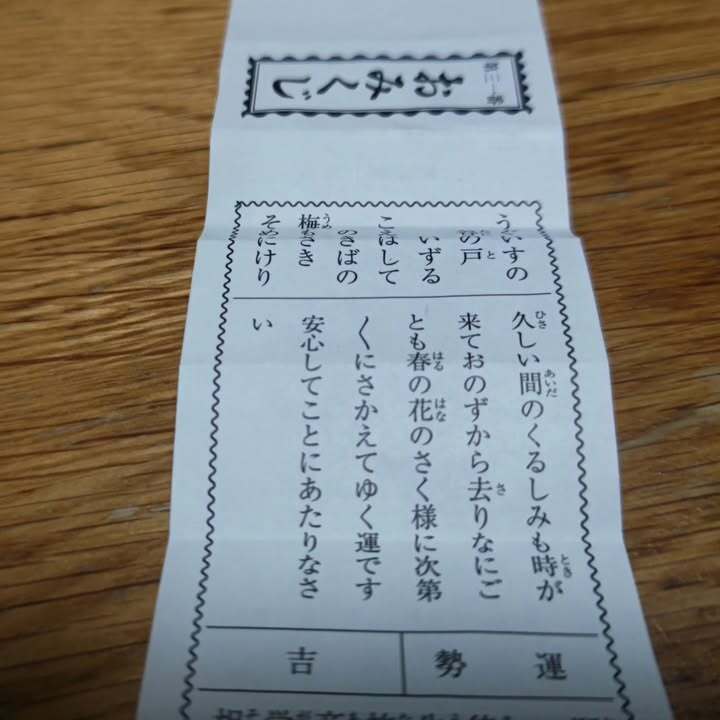 第三一番
おみくじ
うぐいすの
の戸
いずる
はして
のきばの
梅もさき
そめにけり
久しい間のくるしみも時が
来ておのずから去りなにご
とも春の花のさく様に次第
くにさかえてゆく運です
安心してことにあたりなさ
い
運勢
吉